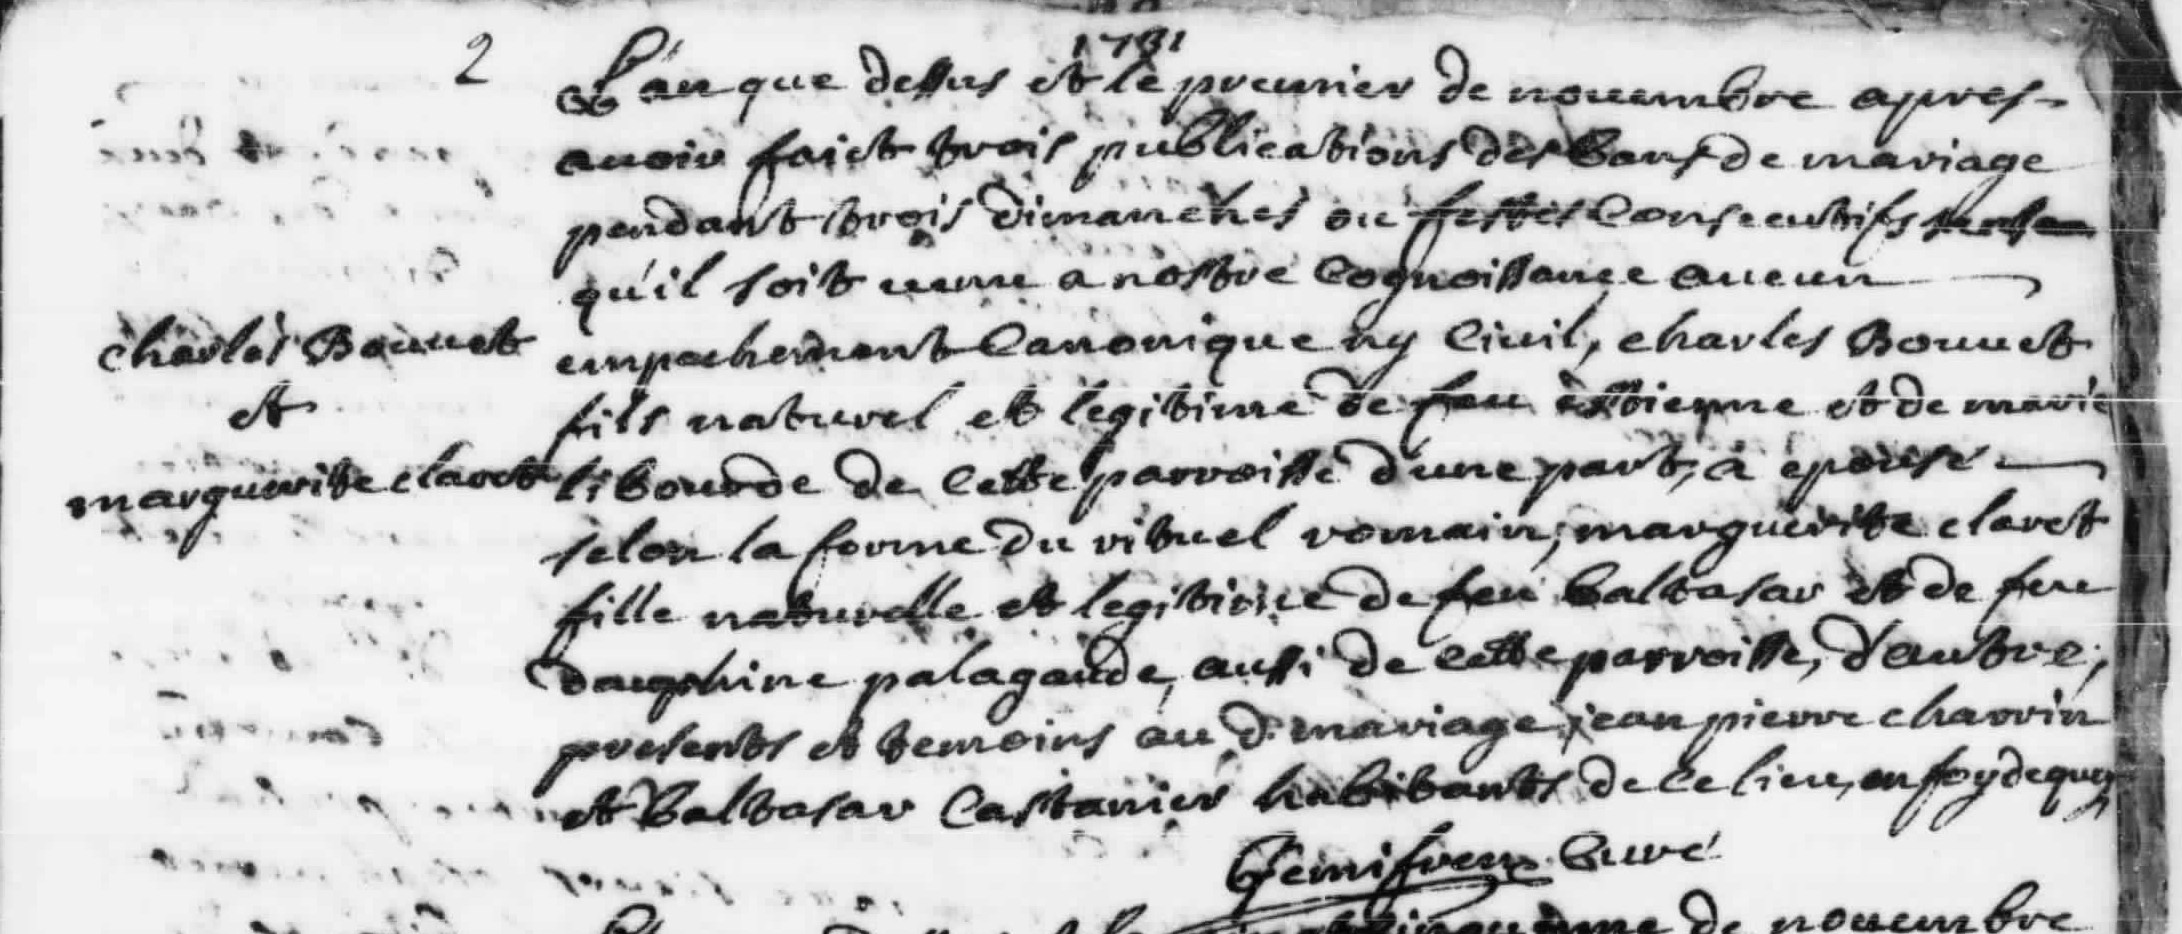 2
1731
L'an que dessus et le premier de nouembre apres
auoir faict trois publications des bans de mariage
pendant trois dimanches ou festes consecutifs sans
qu'il soit uenu a nostre cognoissance aucun
empechement canonique ny ciuil, charles Bouuet
fils naturel et legitime de feu estienne et de marie
libourde de cette parroisse d'une part, a epousé
selon la forme du rituel romain, marguerite claret
fille naturelle et legitime de feu baltasar et de feue
dauphine palagaude, aussi de cette parroisse, d'autre,
presents et temoins au d. mariage jean pierre charrin
et Baltasar Castanier habitants de ce lieu, en foy de quoy
curé
charles Bouuet
et
marguerite claret
de nouembre